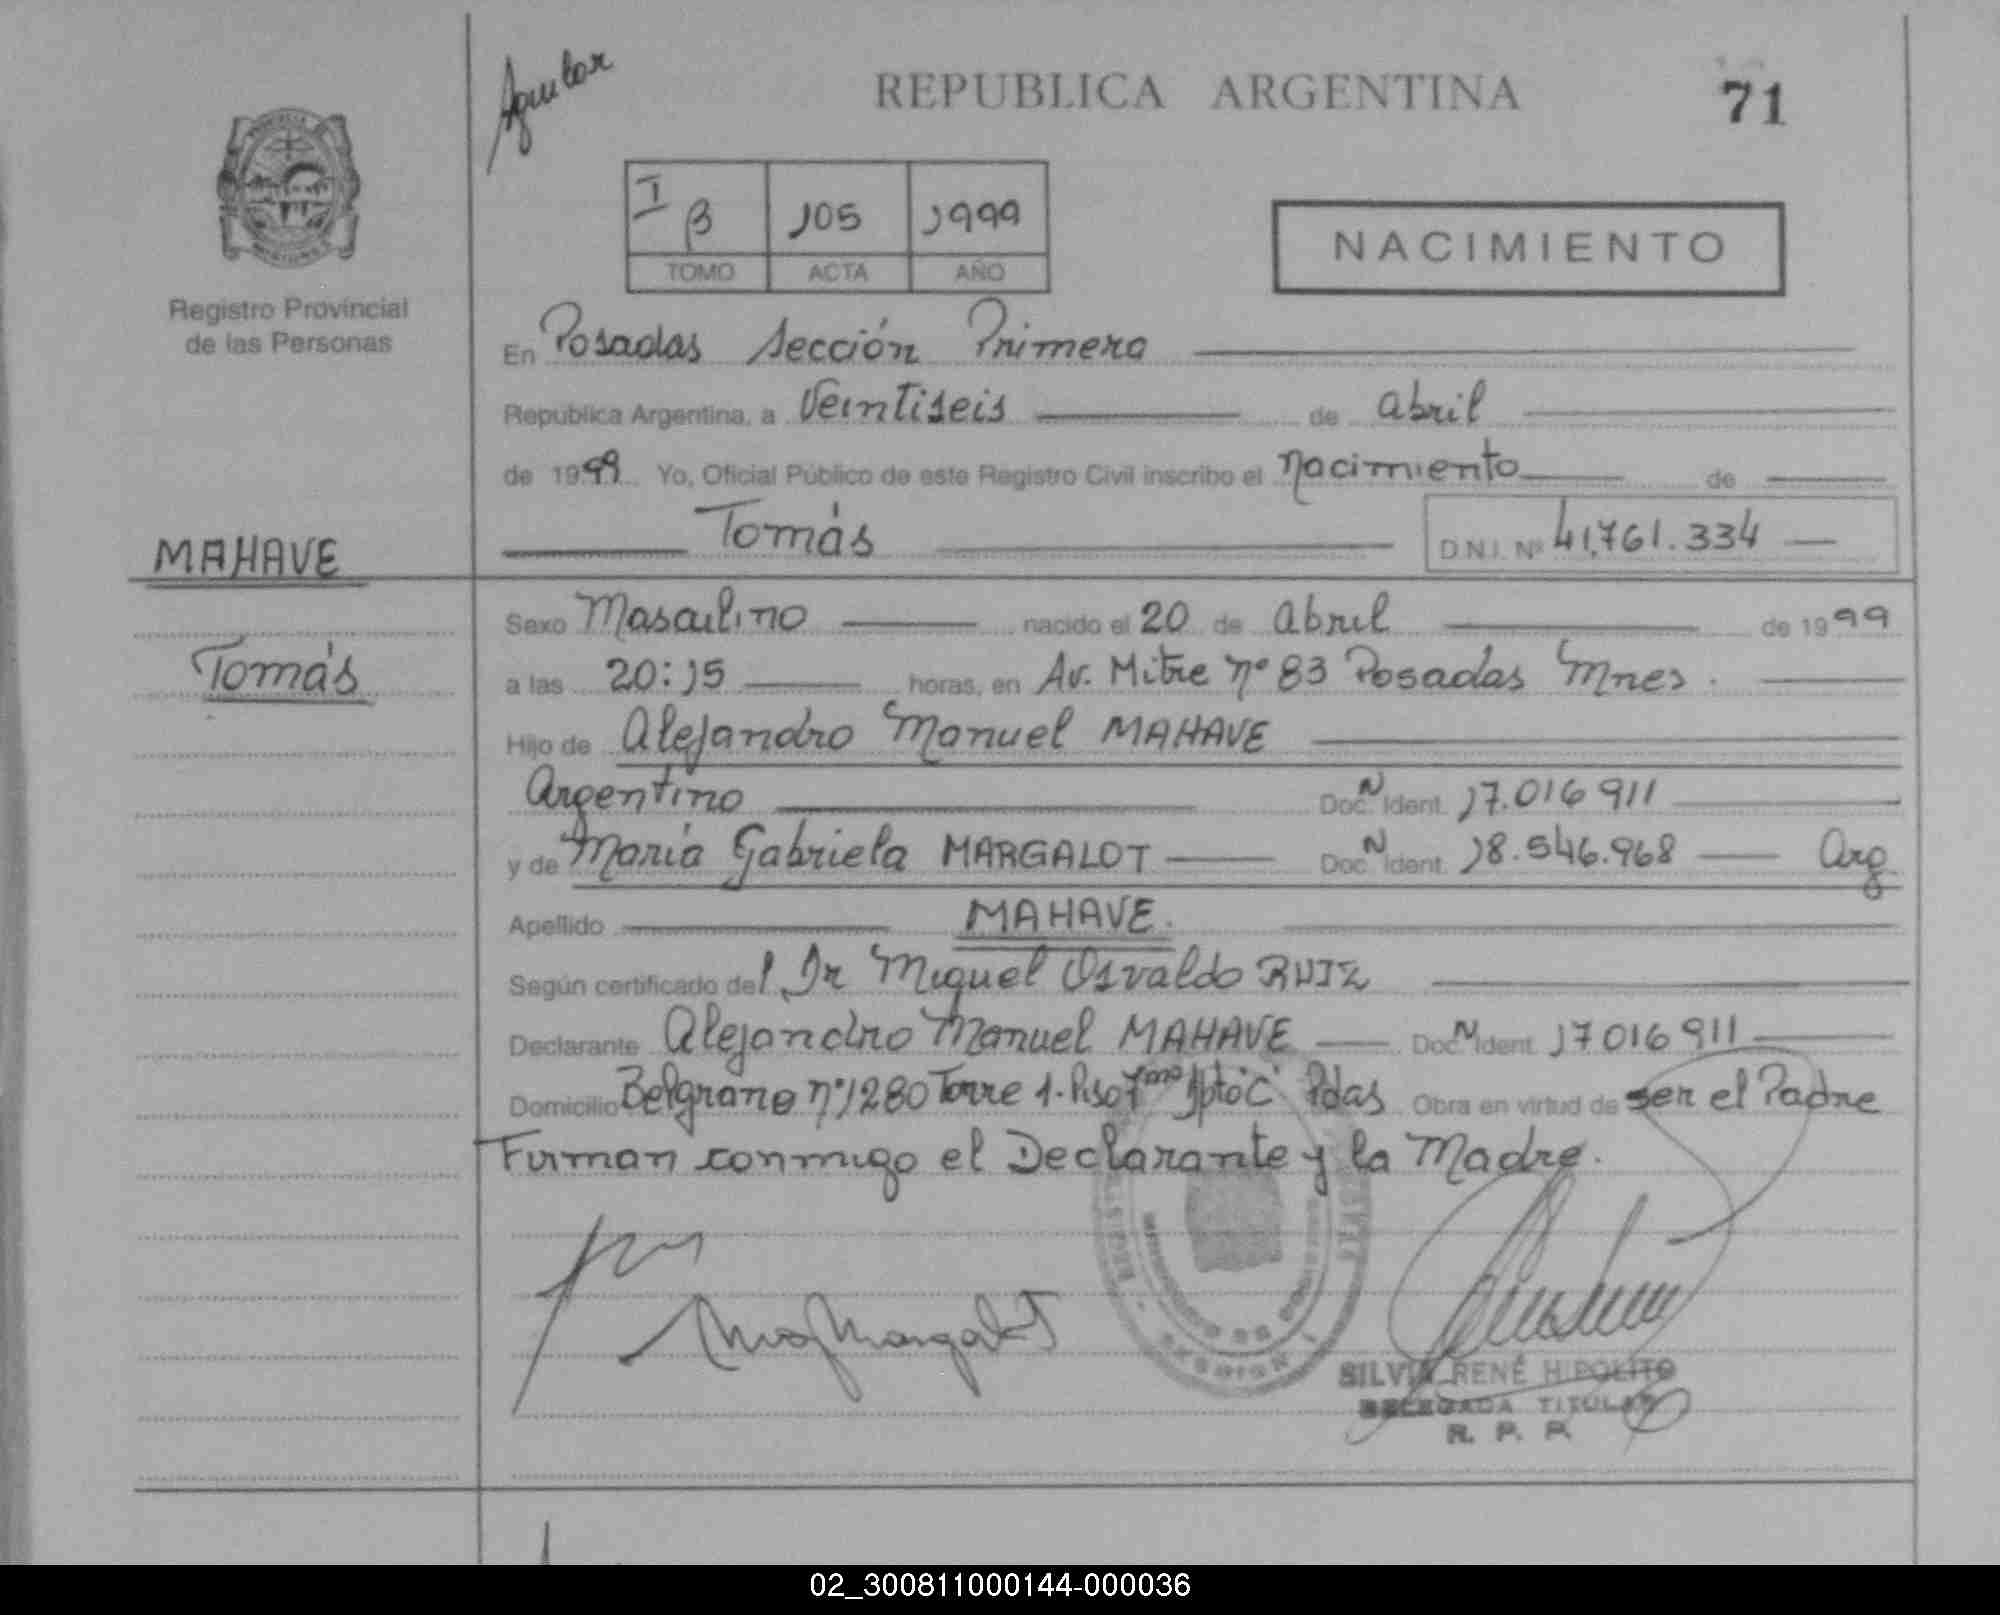 Aguilar
REPUBLICA ARGENTINA
71
I B 105 1999
TOMO ACTA AÑO
NACIMIENTO
Registro Provincial
de las Personas
En Posadas Sección Primera
Republica Argentina, a Veintiseis de Abril
de 1999 Yo, Oficial Público de este Registro Civil inscribo el Nacimiento de
Tomás D.N.I. Nº 41.761.334
MAHAVE
Tomás
Sexo Masculino nacido el 20 de Abril de 1999
a las 20:15 horas, en Av. Mitre nº 83 Posadas Mnes.
Hijo de Alejandro Manuel MAHAVE
Argentino Doc. N Ident. 17.016 911
y de María Gabriela MARGALOT Doc. N Ident. 18.546.968 Arg
Apellido MAHAVE.
Según certificado del Dr Miguel Osvaldo RUIZ
Declarante Alejandro Manuel MAHAVE Doc. N Ident. 17 016 911
Domicilio Belgrano nº 1280 Torre 1. Piso 7mo Apto "C" Pdas Obra en virtud de ser el Padre
Firman conmigo el Declarante y la Madre.
SILVIA RENÉ HIPOLITO
DELEGADA TITULAR
R. P. P.
02_300811000144-000036